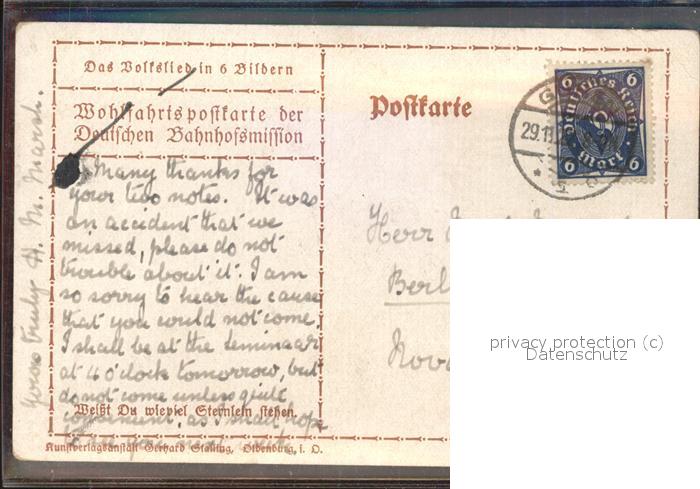 Das Volkslied in 6 Bildern
Wohlfahrtspostkarte der
Deutschen Bahnhofsmission
Many thanks for
your two notes. It was
an accident that we
missed, please do not
trouble about it. I am
so sorry to hear the cause
that you could not come.
I shall be at the seminaar
at 4 o'clock tomorrow, but
do not come unless quite
Weißt Du wieviel Sternlein stehen.
convenient, as I shall hope
you next week
yours truly H. M. Marsh.
Kunstverlagsanstalt Gerhard Stalling, Oldenburg, i. O.
Postkarte
6 6
Deutsches Reich
Mark
6 6
29.11.
Herr
Berl
Nova
privacy protection (c)
Datenschutz